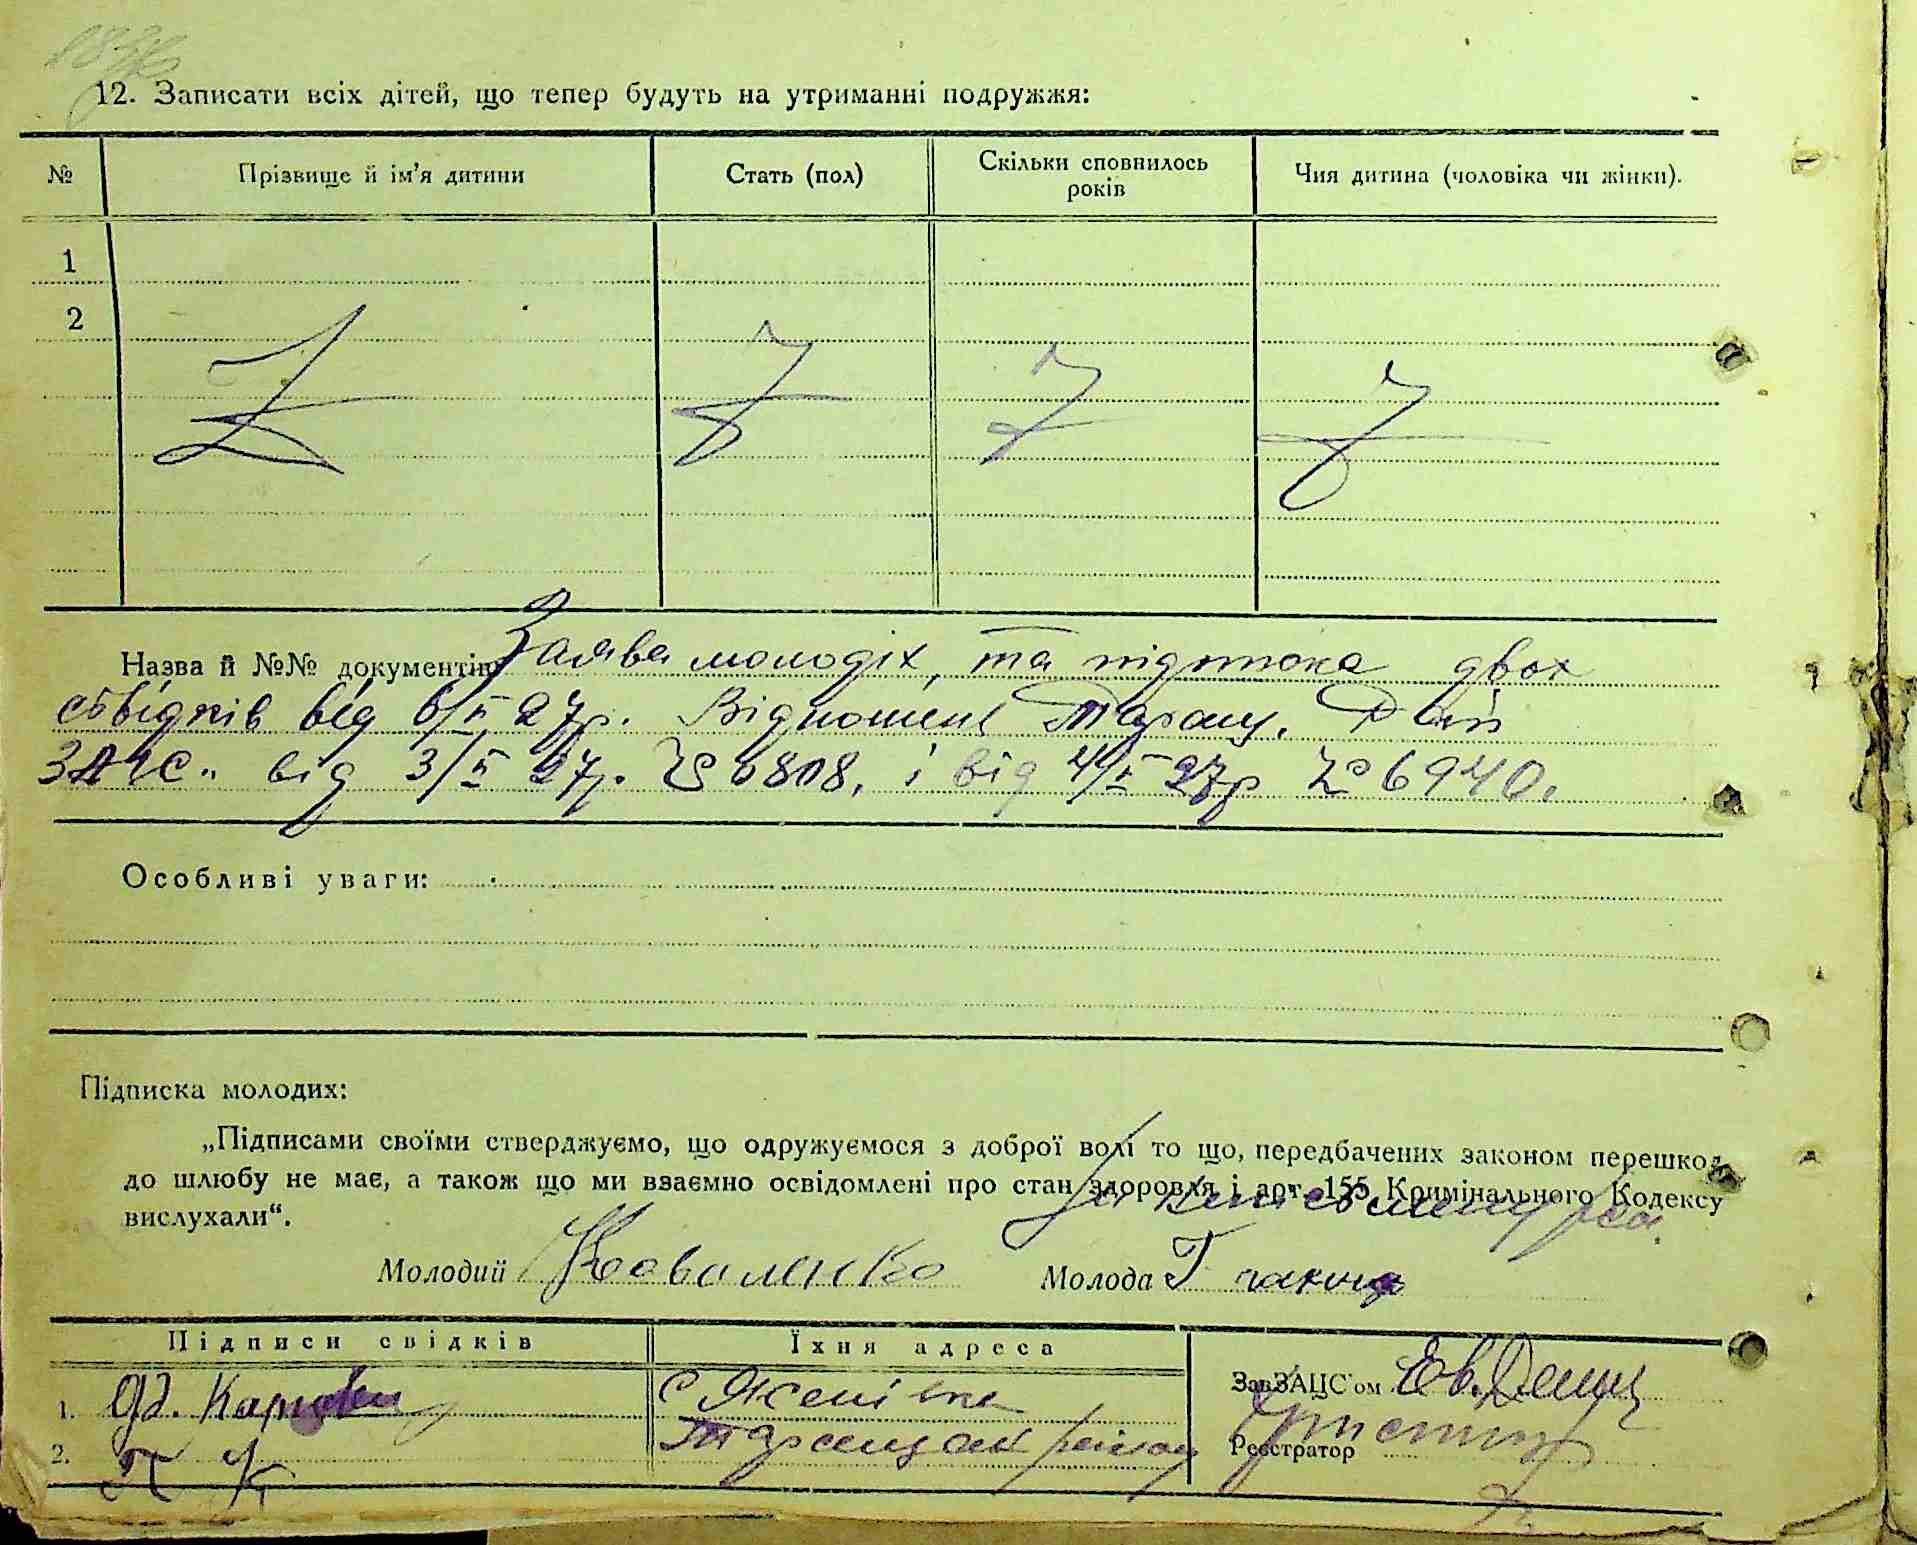 12. Записати всіх дітей, що тепер будуть на утриманні подружжя:
№ Прізвище й ім'я дитини Стать (пол) Скільки сповнилось років Чия дитина (чоловіка чи жінки).
1
2
Назва й №№ документів Заява молодіх, та підписка двох
свідків від 6/V 27р. Відношення Таращ. Рай
ЗАГС. від 3/V 27р. № 6808, і від 4/V 27р № 6940.
Особливі уваги:
Підписка молодих:
„Підписами своїми стверджуємо, що одружуємося з доброї волі то що, передбачених законом перешкод
до шлюбу не має, а також що ми взаємно освідомлені про стан здоровля і арт. 155 Кримінального Кодексу
вислухали“.
Молодий Коваленко Молода
Підписи свідків Їхня адреса
1. с
ЗавЗАЦС'ом Ев.
2. Таращан район
Реєстратор